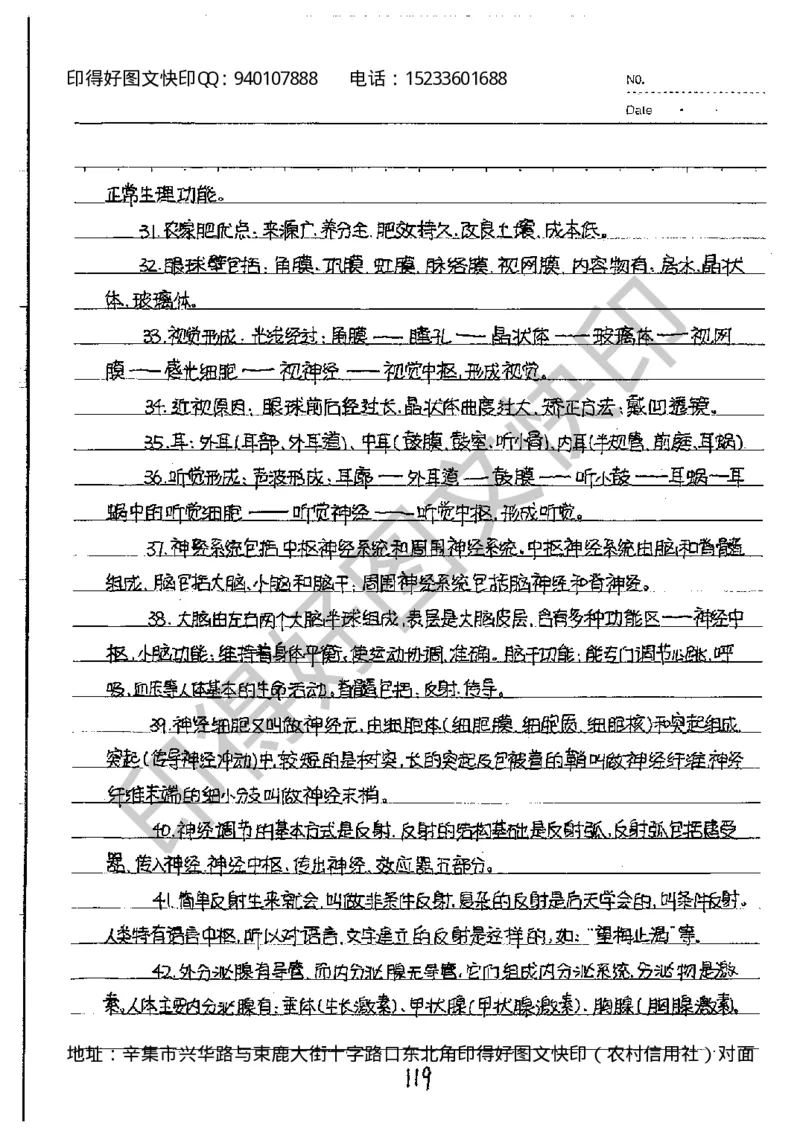 印得好图文快印QQ：940107888 电话：15233601688
NO.
Date
正常生理功能。
31.农家肥优点：来源广.养分全.肥效持久.改良土壤、成本低。
32.眼球壁包括：角膜、巩膜、虹膜、脉络膜、视网膜，内容物有：房水、晶状
体、玻璃体。
33.视觉形成：光线经过：角膜——瞳孔——晶状体——玻璃体——视网
膜——感光细胞——视神经——视觉中枢，形成视觉。
34.近视原因：眼球前后径过长，晶状体曲度过大，矫正方法：戴凹透镜。
35.耳：外耳(耳部、外耳道)、中耳(鼓膜、鼓室、听小骨)、内耳(半规管、前庭、耳蜗)
36.听觉形成：声波形成：耳廓——外耳道——鼓膜——听小鼓——耳蜗—耳
蜗中的听觉细胞——听觉神经——听觉中枢，形成听觉。
37.神经系统包括中枢神经系统和周围神经系统。中枢神经系统由脑和脊髓
组成，脑包括大脑、小脑和脑干；周围神经系统包括脑神经和脊神经。
38.大脑由左右两个大脑半球组成，表层是大脑皮层，含有多种功能区——神经中
枢，小脑功能：维持着身体平衡，使运动协调、准确。脑干功能：能专门调节心跳、呼
吸、血压等人体基本的生命活动。脊髓包括：反射、传导。
39.神经细胞又叫做神经元，由细胞体(细胞膜、细胞质、细胞核)和突起组成.
突起(传导神经冲动)中，较短的是树突，长的突起及包被着的鞘叫做神经纤维.神经
纤维末端的细小分支叫做神经末梢。
40.神经调节的基本方式是反射.反射的结构基础是反射弧，反射弧包括感受
器、传入神经、神经中枢、传出神经、效应器五部分。
41.简单反射生来就会，叫做非条件反射，复杂的反射是后天学会的，叫条件反射。
人类特有语言中枢，所以对语言、文字建立的反射是这样的，如：“望梅止渴”等.
42.外分泌腺有导管，而内分泌腺无导管，它们组成内分泌系统，分泌物是激
素。人体主要内分泌腺有：垂体(生长激素)、甲状腺(甲状腺激素)、胸腺(胸腺激素)。
地址：辛集市兴华路与束鹿大街十字路口东北角印得好图文快印（农村信用社）对面
119
印得好图文快印